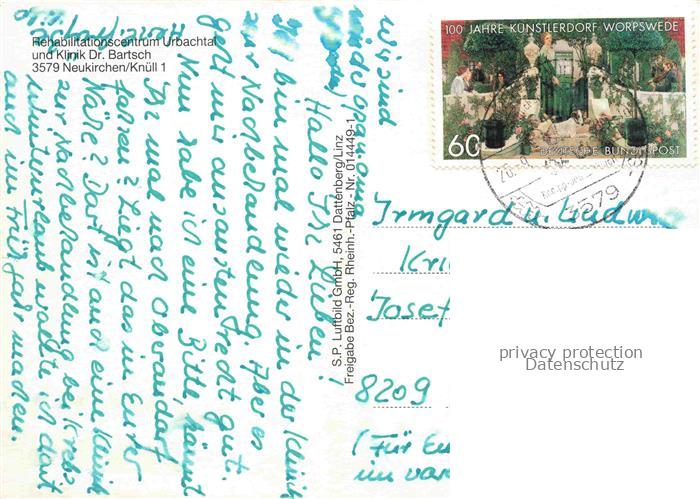 Rehabilitationscentrum Urbachtal
und Klinik Dr. Bartsch
3579 Neukirchen/Knüll 1
Hallo Ihr Lieben!
Ich bin mal wieder in der Klinik
zur Nachbehandlung. Aber es
geht mir ansonsten recht gut.
Nun habe ich eine Bitte, könnt
Ihr mal nach Oberaudorf
fahren? Liegt das in Eurer
Nähe? Dort ist auch eine Klinik
zur Nachbehandlung bei Krebs.
Winterurlaub wollte ich dort
auch im Frühjahr machen.
Herzl.
wir sind
S.P. Luftbild GmbH, 5461 Dattenberg/Linz
Freigabe Bez.-Reg. Rheinh.-Pfalz - Nr. 014449-1
100 JAHRE KÜNSTLERDORF WORPSWEDE
60
DEUTSCHE BUNDESPOST
3579
Irmgard u. Ludwi
Kri
Josef
8209
(Für Eu
im var
privacy protection
Datenschutz